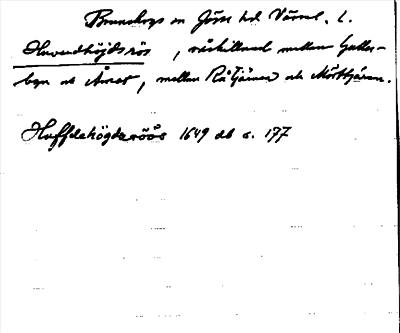 Brunskogs sn Jösse hd Värml. l.
Huvudhöjdsrös , råskillnad mellan Gullers-
byn och Årset , mellan Råtjärnen och Mörttjärnen.
Huffdehögdzröös 1649 db s. 177